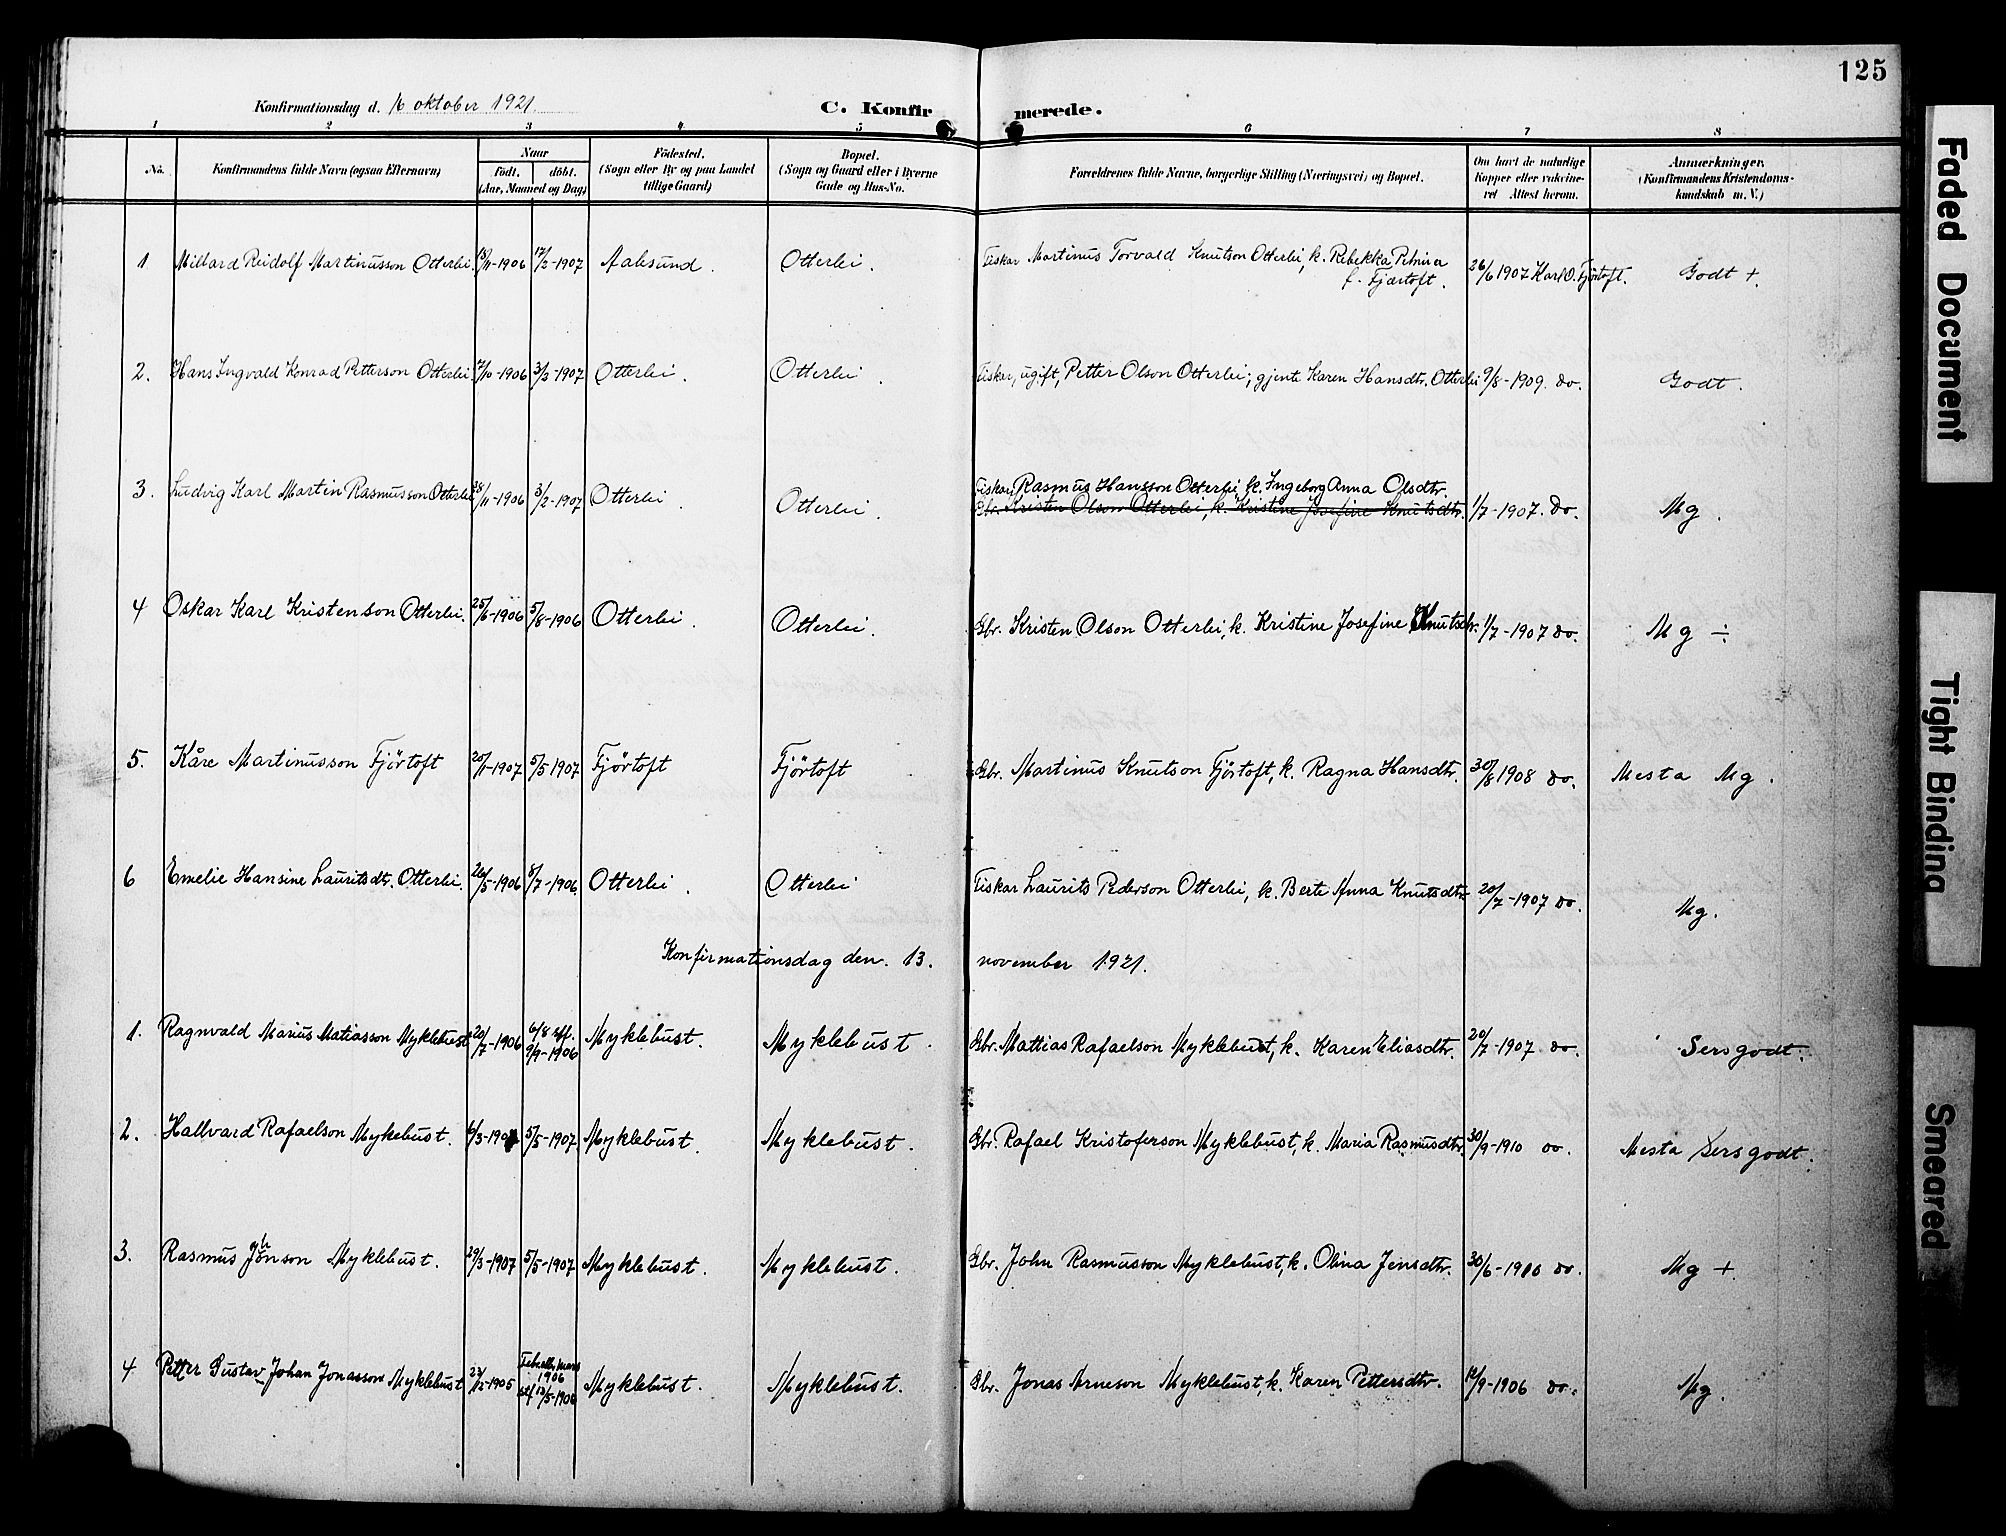 125
Konfirmationsdag d. 16 oktober 1921.
C. Konfirmerede.
1 2 3 4 5 6 7 8
No.
Konfirmandens fulde Navn (ogsaa Efternavn)
Naar
født. døbt.
(Aar, Maaned og Dag)
Födested.
(Sogn eller By og paa Landet
tillige Gaard)
Bopæl.
(Sogn og Gaard eller i Byerne
Gade og Hus-No.
Forældrenes fulde Navne, borgerlige Stilling (Næringsvei) og Bopæl.
Om havt de naturlige
Kopper eller vakcine-
ret Attest herom.
Anmærkninger.
(Konfirmandens Kristendoms-
kundskab m. V.)
1 Millard Reidolf Martinusson Otterlei. 18/11-1906 17/2-1907 Aalesund. Otterlei. Fiskar Martinus Torvald Knutson Otterlei, k. Rebekka Petrina f. Fjærtoft. 26/6 1907 Karl O. Fjørtoft. Godt +.
2. Hans Ingvald Konrad Petterson Otterlei 7/10-1906 3/2-1907 Otterlei. Otterlei. Fiskar, ugift, Petter Olson Otterlei; gjente Karen Hansdtr. Otterlei 9/8-1909. do. Godt.
3. Ludvig Karl Martin Rasmusson Otterlei 28/11-1906 3/2-1907 Otterlei. Otterlei. Fiskar Rasmus Hansson Otterlei, k. Ingeborg Anna Olsdtr.
Gbr. Kristen Olson Otterlei, k. Kristine Josefine Knutsdtr. 1/7-1907. do. Mg.
4 Oskar Karl Kristenson Otterlei. 25/6-1906 5/8-1906 Otterlei. Otterlei. Gbr. Kristen Olson Otterlei, k. Kristine Josefine Knutsdtr. 1/7-1907 do. Mg ÷
5. Kåre Martinusson Fjörtoft 20/1-1907 5/5 1907 Fjörtoft Fjörtoft Gbr. Martinus Knutson Fjörtoft, k. Ragna Hansdtr. 30/8 1908 do. Mesta Mg.
6 Emelie Hansine Lauritsdtr. Otterlei. 26/5-1906 8/7-1906 Otterlei. Otterlei Fiskar Laurits Pederson Otterlei, k. Berte Anna Knutsdtr. 20/7-1907 do. Mg.
Konfirmationsdag den. 13. november 1921.
1. Ragnvald Marius Matiasson Myklebust 20/7-1906 6/8 stf. 9/9-1906 Myklebust. Myklebust. Gbr. Mattias Rafaelson Myklebust, k. Karen Eliasdtr. 20/7-1907 do. Sers godt.
2. Hallvard Rafaelson Mykebust. 6/3-1907 5/5-1907. Myklebust. Myklebust. Gbr. Rafael Kristoferson Myklebust, k. Maria Rasmusdtr. 30/9-1910 do. Mesta sers godt.
3. Rasmus Johnson Myklebust. 29/3-1907 5/5-1907 Myklebust. Myklebust. Gbr. John Rasmusson Myklebust, k. Olina Jensdtr. 30/6-1910 do. Mg +.
4 Petter Gustav Johan Jonasson Myklebust 23/12-1905 Feb. ell. mars 1906 stf 13/5-1906 Myklebust. Myklebust. Gbr. Jonas Arneson Myklebust, k. Karen Pettersdtr. 12/9-1906 do. Mg.
Faded Document
Tight Binding
Smeared